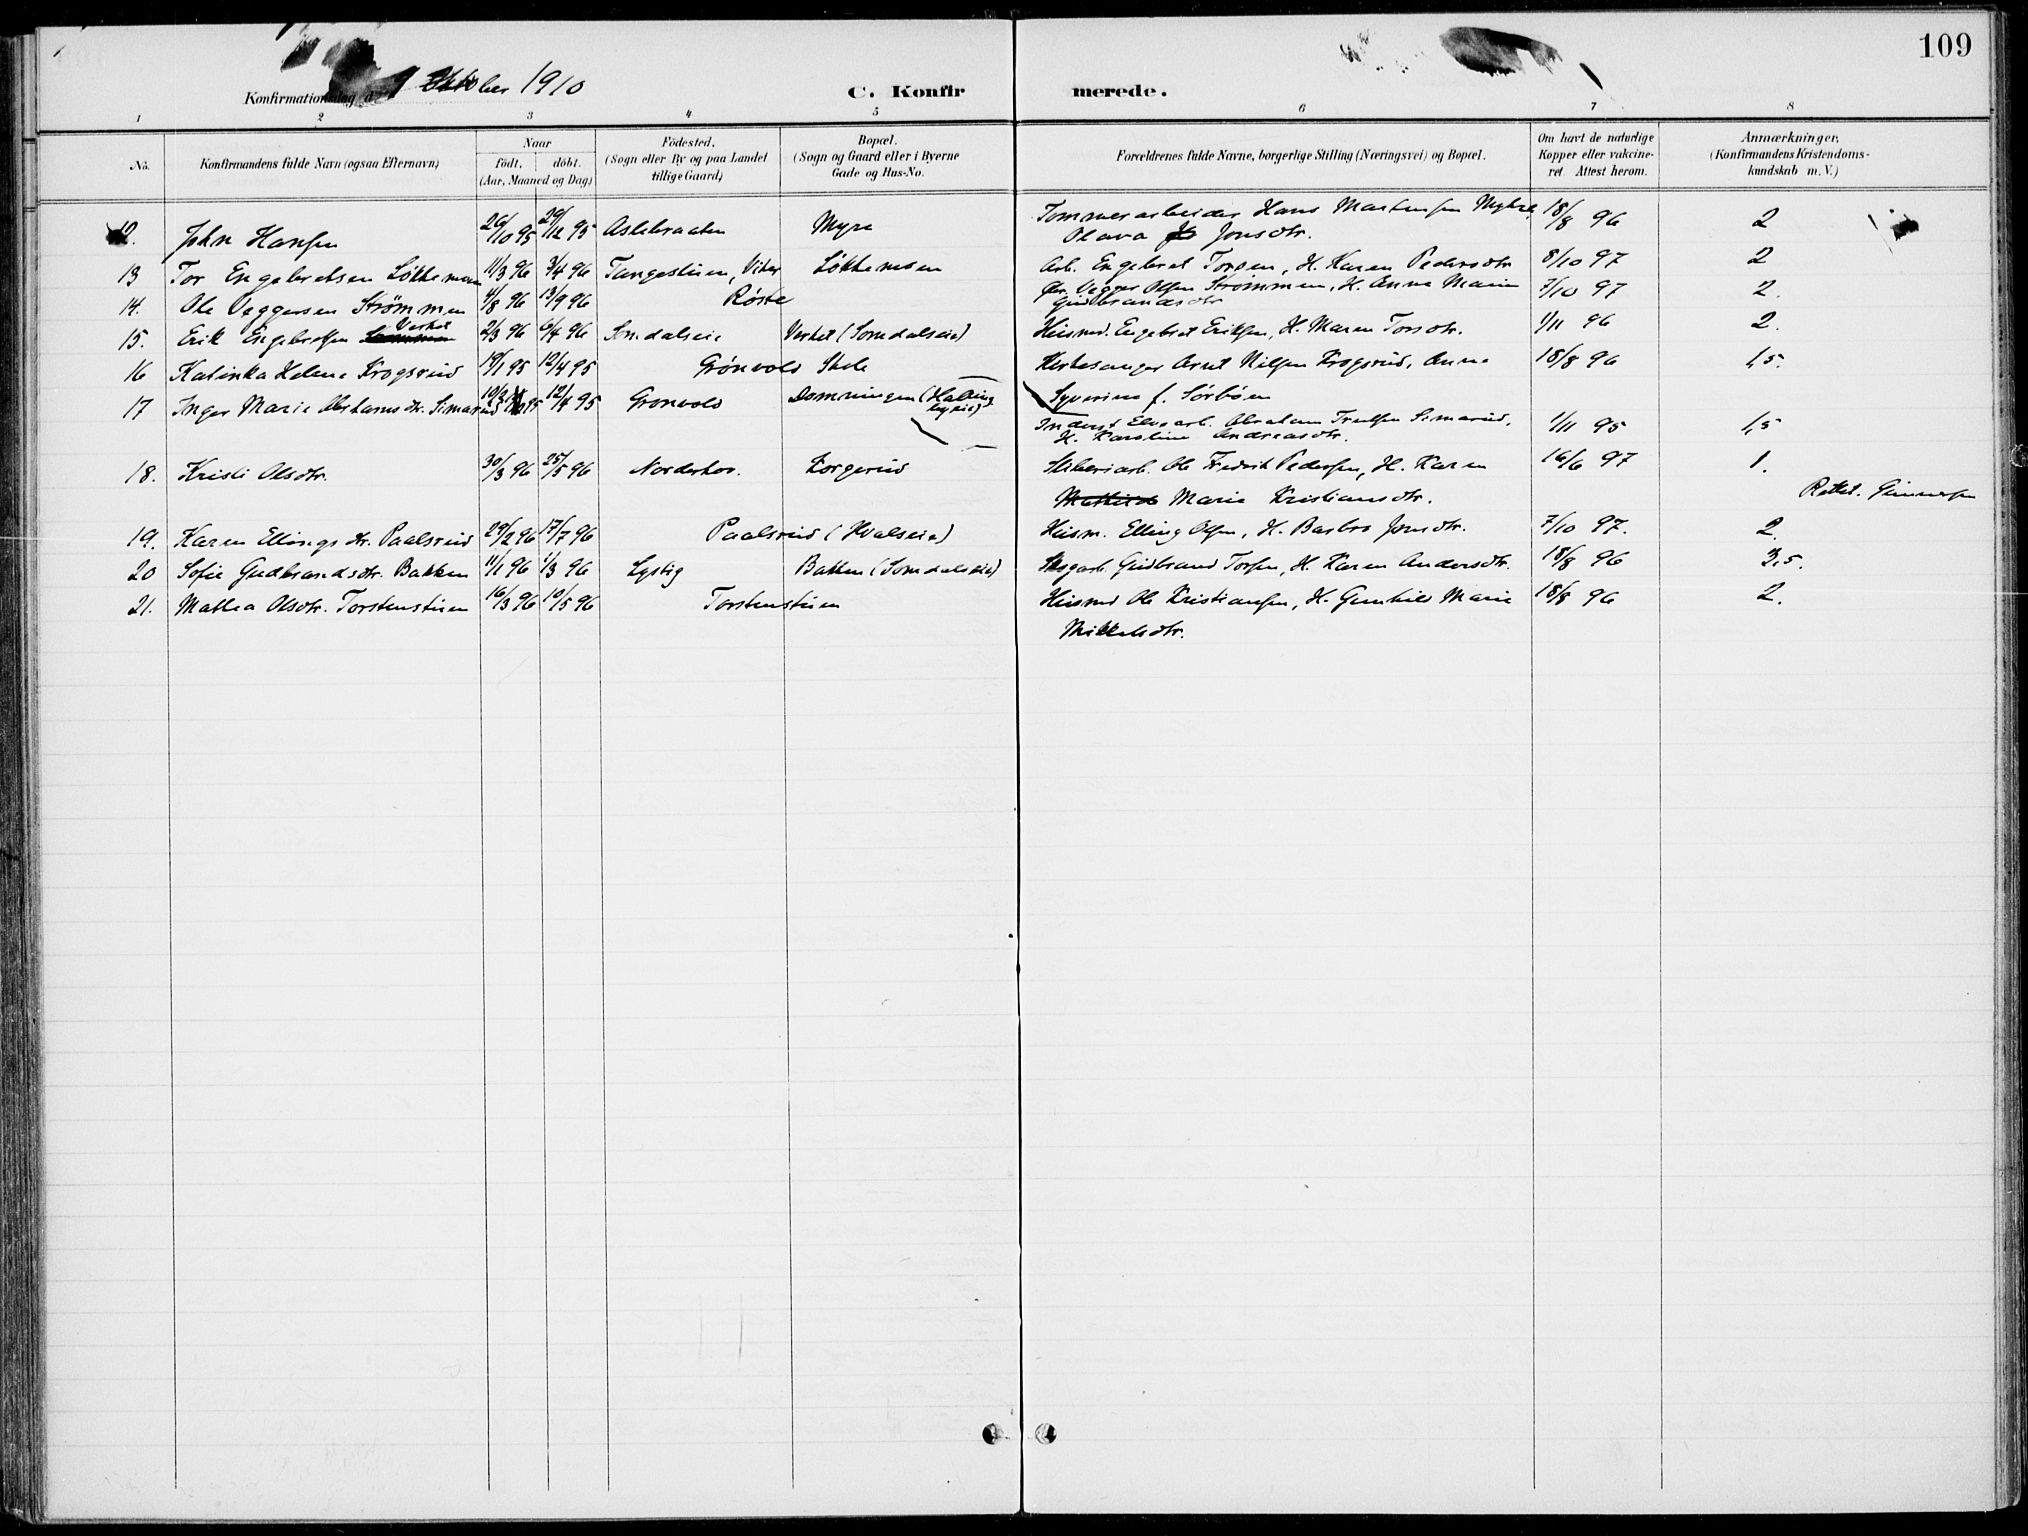 109
Konfirmationsdag d. 9 Oktober 1910
C. Konfirmerede.
1 2 3 4 5 6 7 8
No.
Konfirmandens fulde Navn (ogsaa Efternavn)
Naar
födt. döbt.
(Aar, Maaned og Dag)
Födested.
(Sogn eller By og paa Landet
tillige Gaard)
Bopæl.
(Sogn og Gaard eller i Byerne
Gade og Hus-No.
Forældrenes fulde Navne, borgerlige Stilling (Næringsvei) og Bopæl.
Om havt de naturlige
Kopper eller vakcine-
ret. Attest herom.
Anmærkninger,
(Konfirmandens Kristendoms-
kundskab m. V.)
12. John Hansen 26/10 95 29/12 95 Aslebraaten Myra Tømmerarbeider Hans Martinsen 18/8 96 2
Olava Jonsdtr.
13 Tor Engebretsen Løkkemoen 11/3 96 3/4 96 Tangestuen, Viker Løkkemoen Arb. Engebret Torsen, H. Karen Pedersdtr 8/10 97 2
14. Ole Veggersen Strømmen 4/8 96 13/9 96 Røste Vegger Olsen Strømmen, H. Anna Marie 7/10 97 2.
Gudbrandsdtr
15. Erik Engebretsen Verket 2/3 96 6/4 96 Somdalseie Verket (Somdalseie) Husmd. Engebret Eriksen, H. Maren Torsdtr. 1/11 96 2.
16 Katinka Helene Krogsrud 19/1 95 12/4 95 Grønvold Skole Kirkesanger Arnt Nilsen Krogsrud, Anna 18/8 96 1,5.
Syverine f. Sørbøen
17 Inger Marie Abrahamsdtr. Simarud 12/4 95 Grønvold Domningen (Halling
byeie)
Inderst Elvearb. Abraham Truelsen Simarud, 1/11 95 1,5
H. Karoline Andreasdtr.
18. Kristi Olsdtr. 30/3 96 25/5 96 Norderhov. Sliberiarb. Ole Fredrik Pedersen, H. Karen 16/6 97 1.
Marie Kristiansdtr.
Rettet. Gunnersen
19. Karen Ellingsdtr. Paalsrud 29/2 96 17/7 96 Paalsrud (Hvalseie) Husm. Elling Olsen, H. Barbro Jonsdtr. 7/10 97. 2.
20 Sofie Gudbrandsdtr. Bakken 11/1 96 1/3 96 Lystig Bakken (Somdalseie) Skogarb. Gudbrand Torsen, H. Karen Andersdtr. 18/8 96 3,5.
21. Mathea Olsdtr. Torstenstuen 16/3 96 10/5 96 Torstenstuen Husmd Ole Kristiansen, H. Gunhild Marie 18/8 96 2.
Mikkelsdtr.